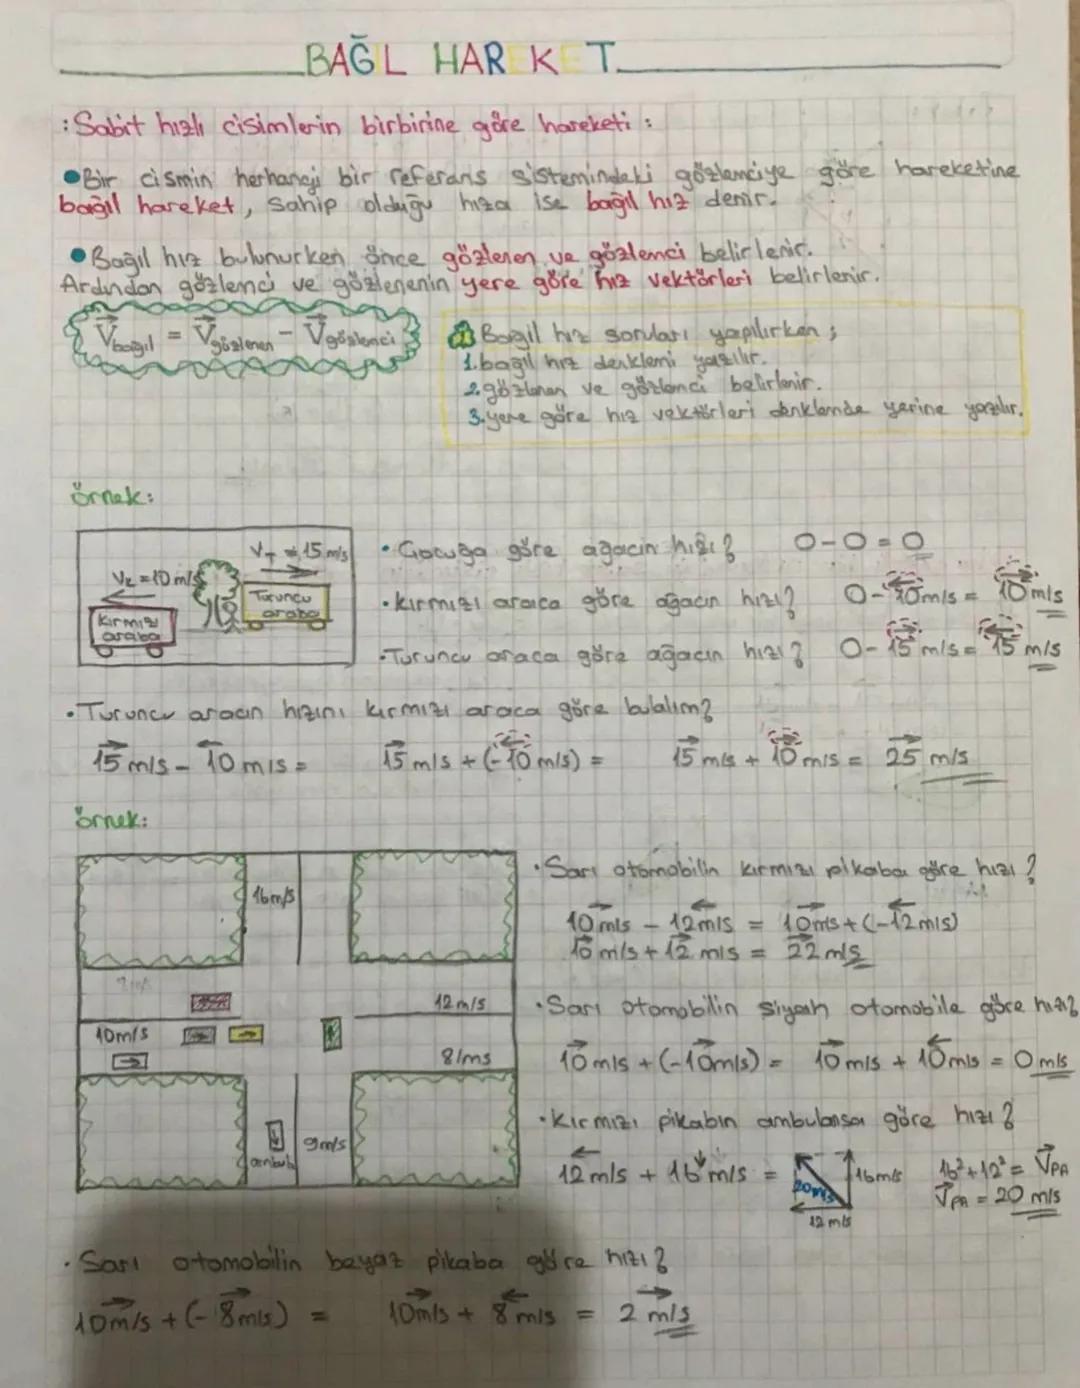 BAĞIL HAREKET
: Sabit hızlı cisimlerin birbirine göre hareketi :
•Bir cismin herhangi bir referans sistemindeki gözlemciye göre hareketine
bağıl hareket, sahip olduğu hıza ise bağıl hız denir.
•Bağıl hız bulunurken önce gözlenen ve gözlemci belirlenir.
Ardından gözlemci ve gözlenenin yere göre hız vektörleri belirlenir.
V⃗bağıl = V⃗gözlenen - V⃗gözlemci
Bağıl hız soruları yapılırken ;
1.bağıl hız denklemi yazılır.
2.gözlenen ve gözlemci belirlenir.
3.yere göre hız vektörleri denklemde yerine yazılır.
örnek:
VT = 15 m/s
VK = 10 m/s
Turuncu
araba
Kırmızı
araba
• Çocuğa göre ağacın hızı? 0-0=0
• Kırmızı araca göre ağacın hızı? 0-10m/s = 10m/s
• Turuncu araca göre ağacın hızı? 0-15 m/s = 15 m/s
• Turuncu aracın hızını kırmızı araca göre bulalım?
15 m/s - 10 m/s = 15 m/s + (-10 m/s) = 15 m/s + 10 m/s = 25 m/s
örnek:
16m/s
12m/s
10m/s
8/ms
ambul
9m/s
• Sarı otomobilin kırmızı pikaba göre hızı ?
10 m/s - 12m/s = 10m/s + (-12m/s)
10 m/s + 12 m/s = 22 m/s
• Sarı otomobilin siyah otomobile göre hızı?
10 m/s + (-10m/s) = 10 m/s + 10m/s = 0 m/s
• Kırmızı pikabın ambulansa göre hızı ?
12 m/s + 16 m/s = 20m/s 16m/s 12 m/s
16²+12² = V⃗PA
V⃗PA = 20 m/s
• Sarı otomobilin beyaz pikaba göre hızı ?
10m/s + (- 8m/s) = 10m/s + 8m/s = 2 m/s